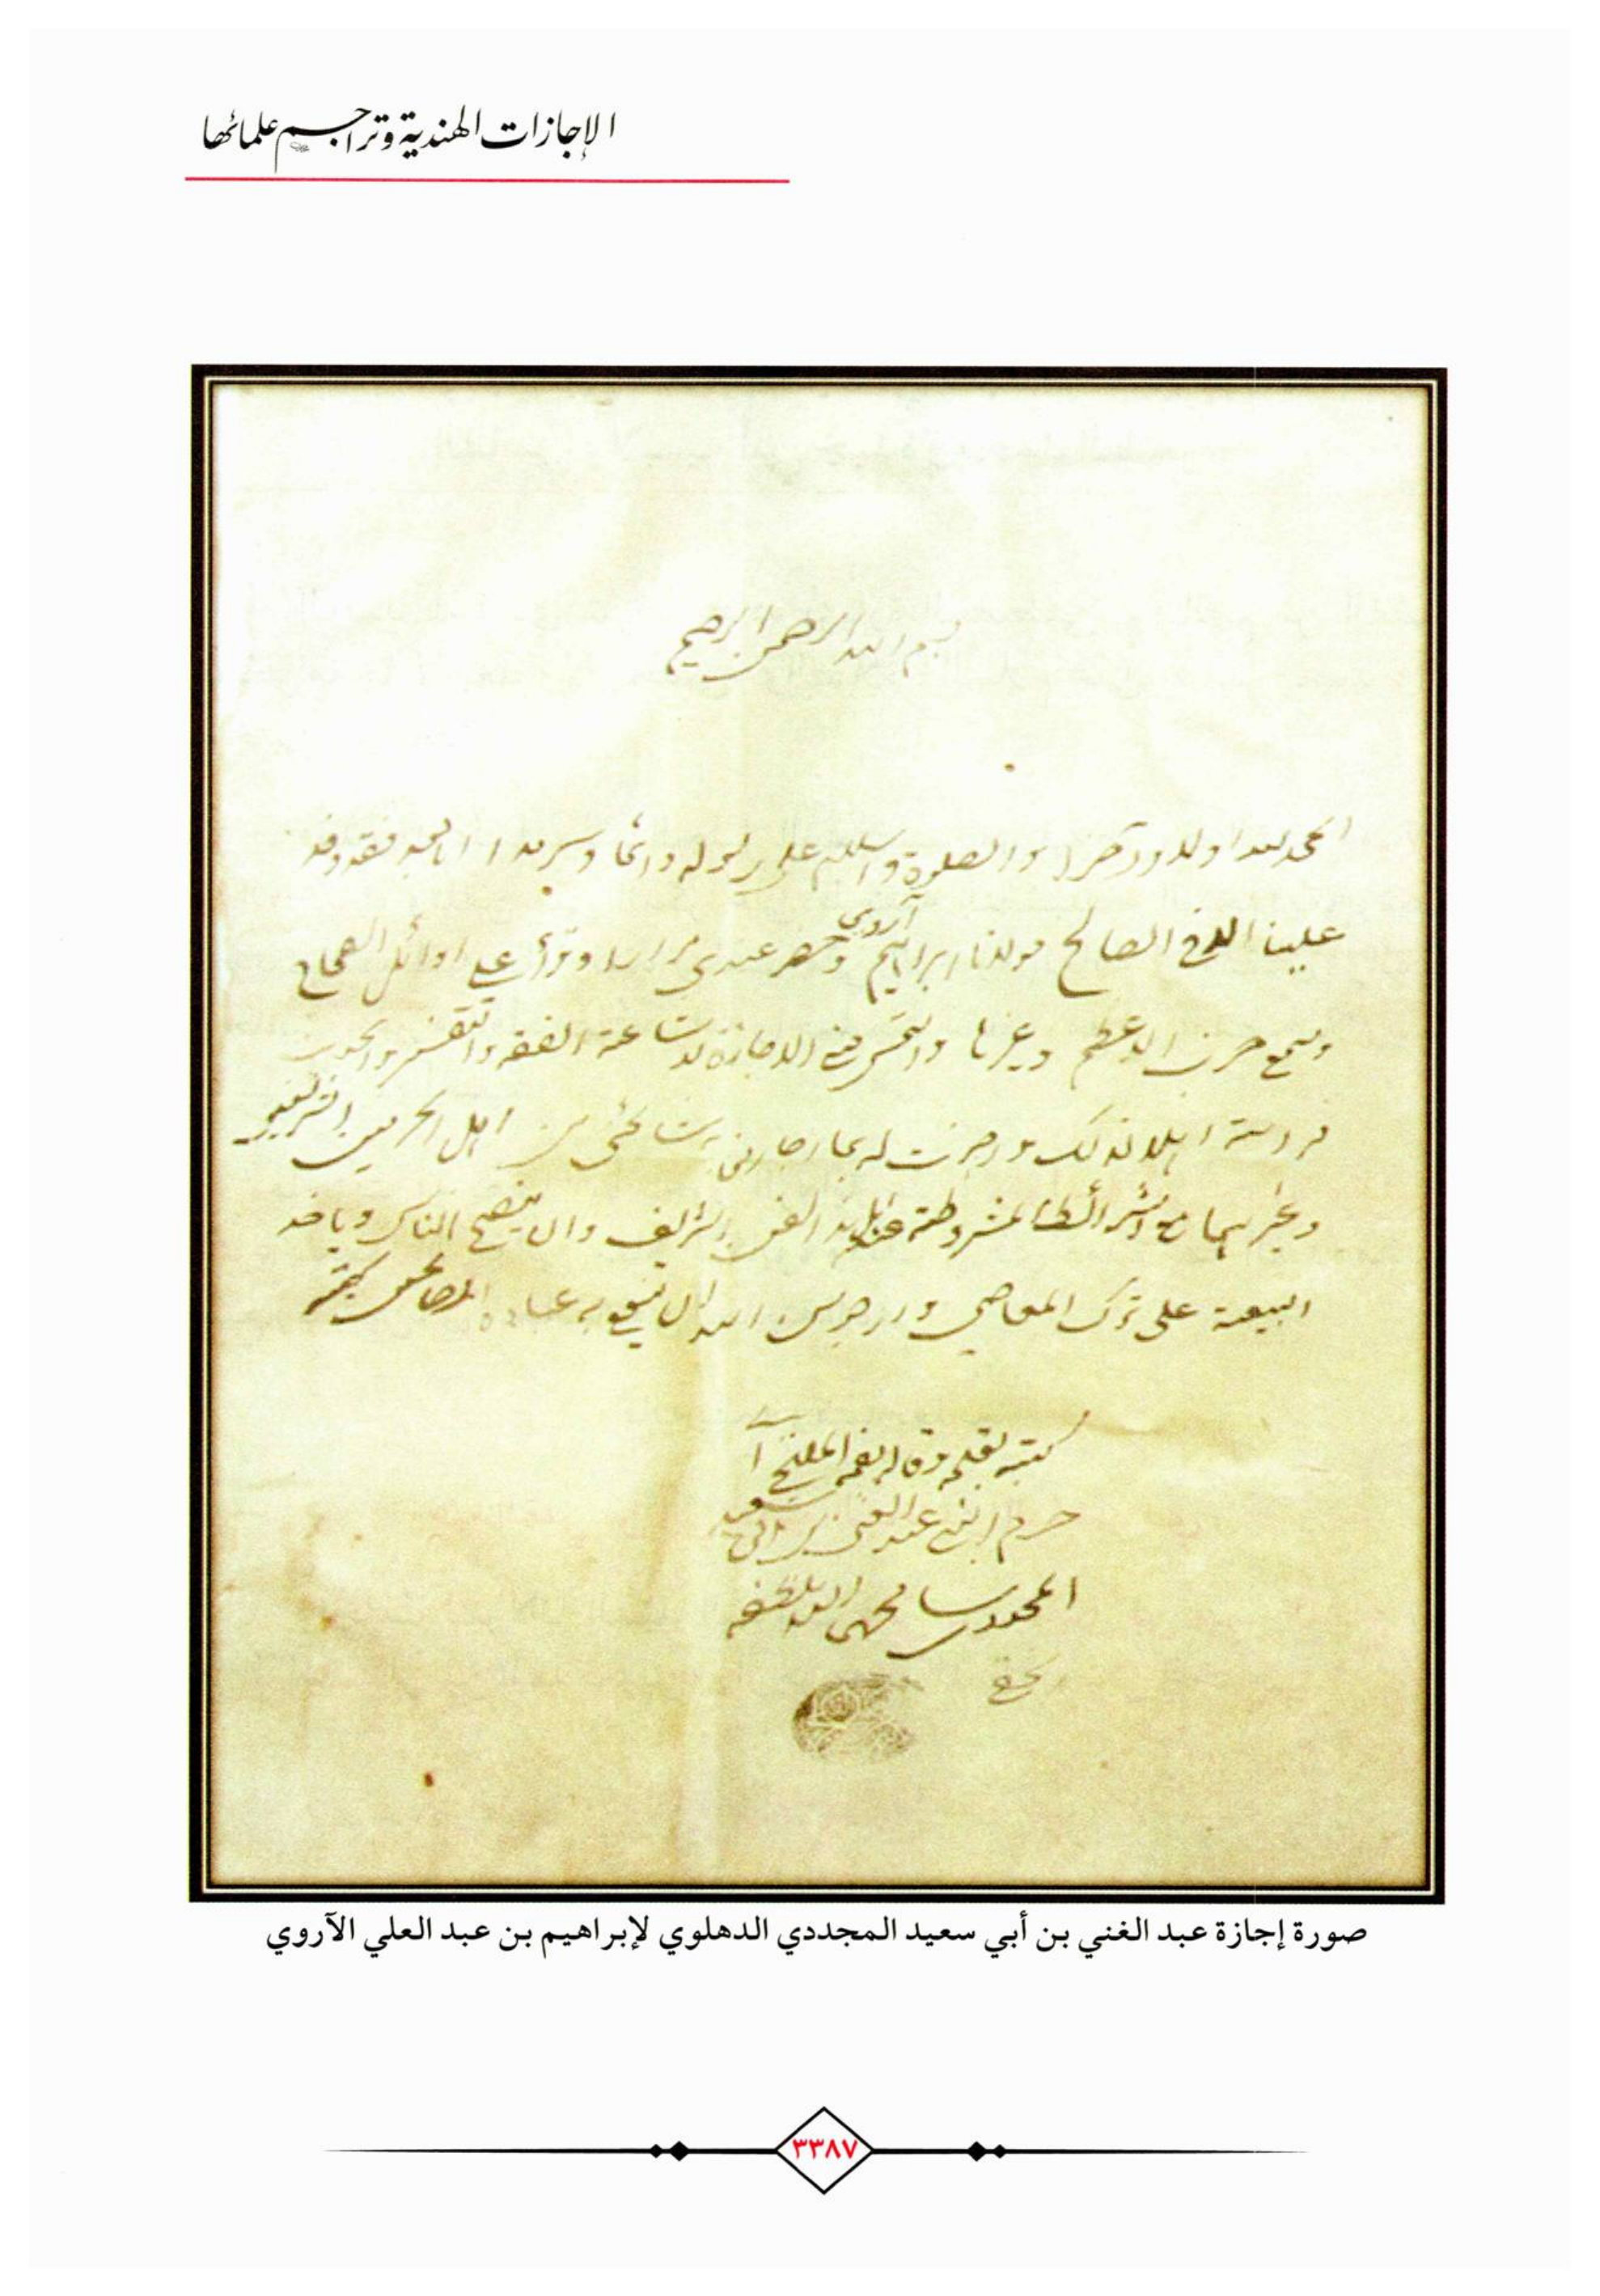 الإجازات الهندية وتراجم علمائها
بسم الله الرحمن الرحيم
الحمد لله اولا و آخرا والصلوة والسلام على رسوله دائما وسرمدا اما بعد فقد وفد
علينا الاخ الصالح مولانا ابراهيم آروي وحضر عندي مرارا وقرأ علي اوائل الصحاح
وسمع حزب الاعظم وغيرها والتمس مني الاجازة لاشاعة الفقه والتفسير والحديث
اهلا لذلك واجزت له بما اجازني مشائخي من اهل الحرمين الشريفين
وغيرهما مع الشرائط المشروطة عند اهل هذا الفن الشريف وان ينصح الناس وياخذ
البيعة على ترك المعاصي وارجو من الله ان ينفع به عباده
كتبه بقلمه وقاله بفمه الملتجي
حرم النبي عبد الغني بن ابي سعيد
المجددي سامحهما الله بلطفه
صورة إجازة عبد الغني بن أبي سعيد المجددي الدهلوي لإبراهيم بن عبد العلي الآروي
٣٣٨٧